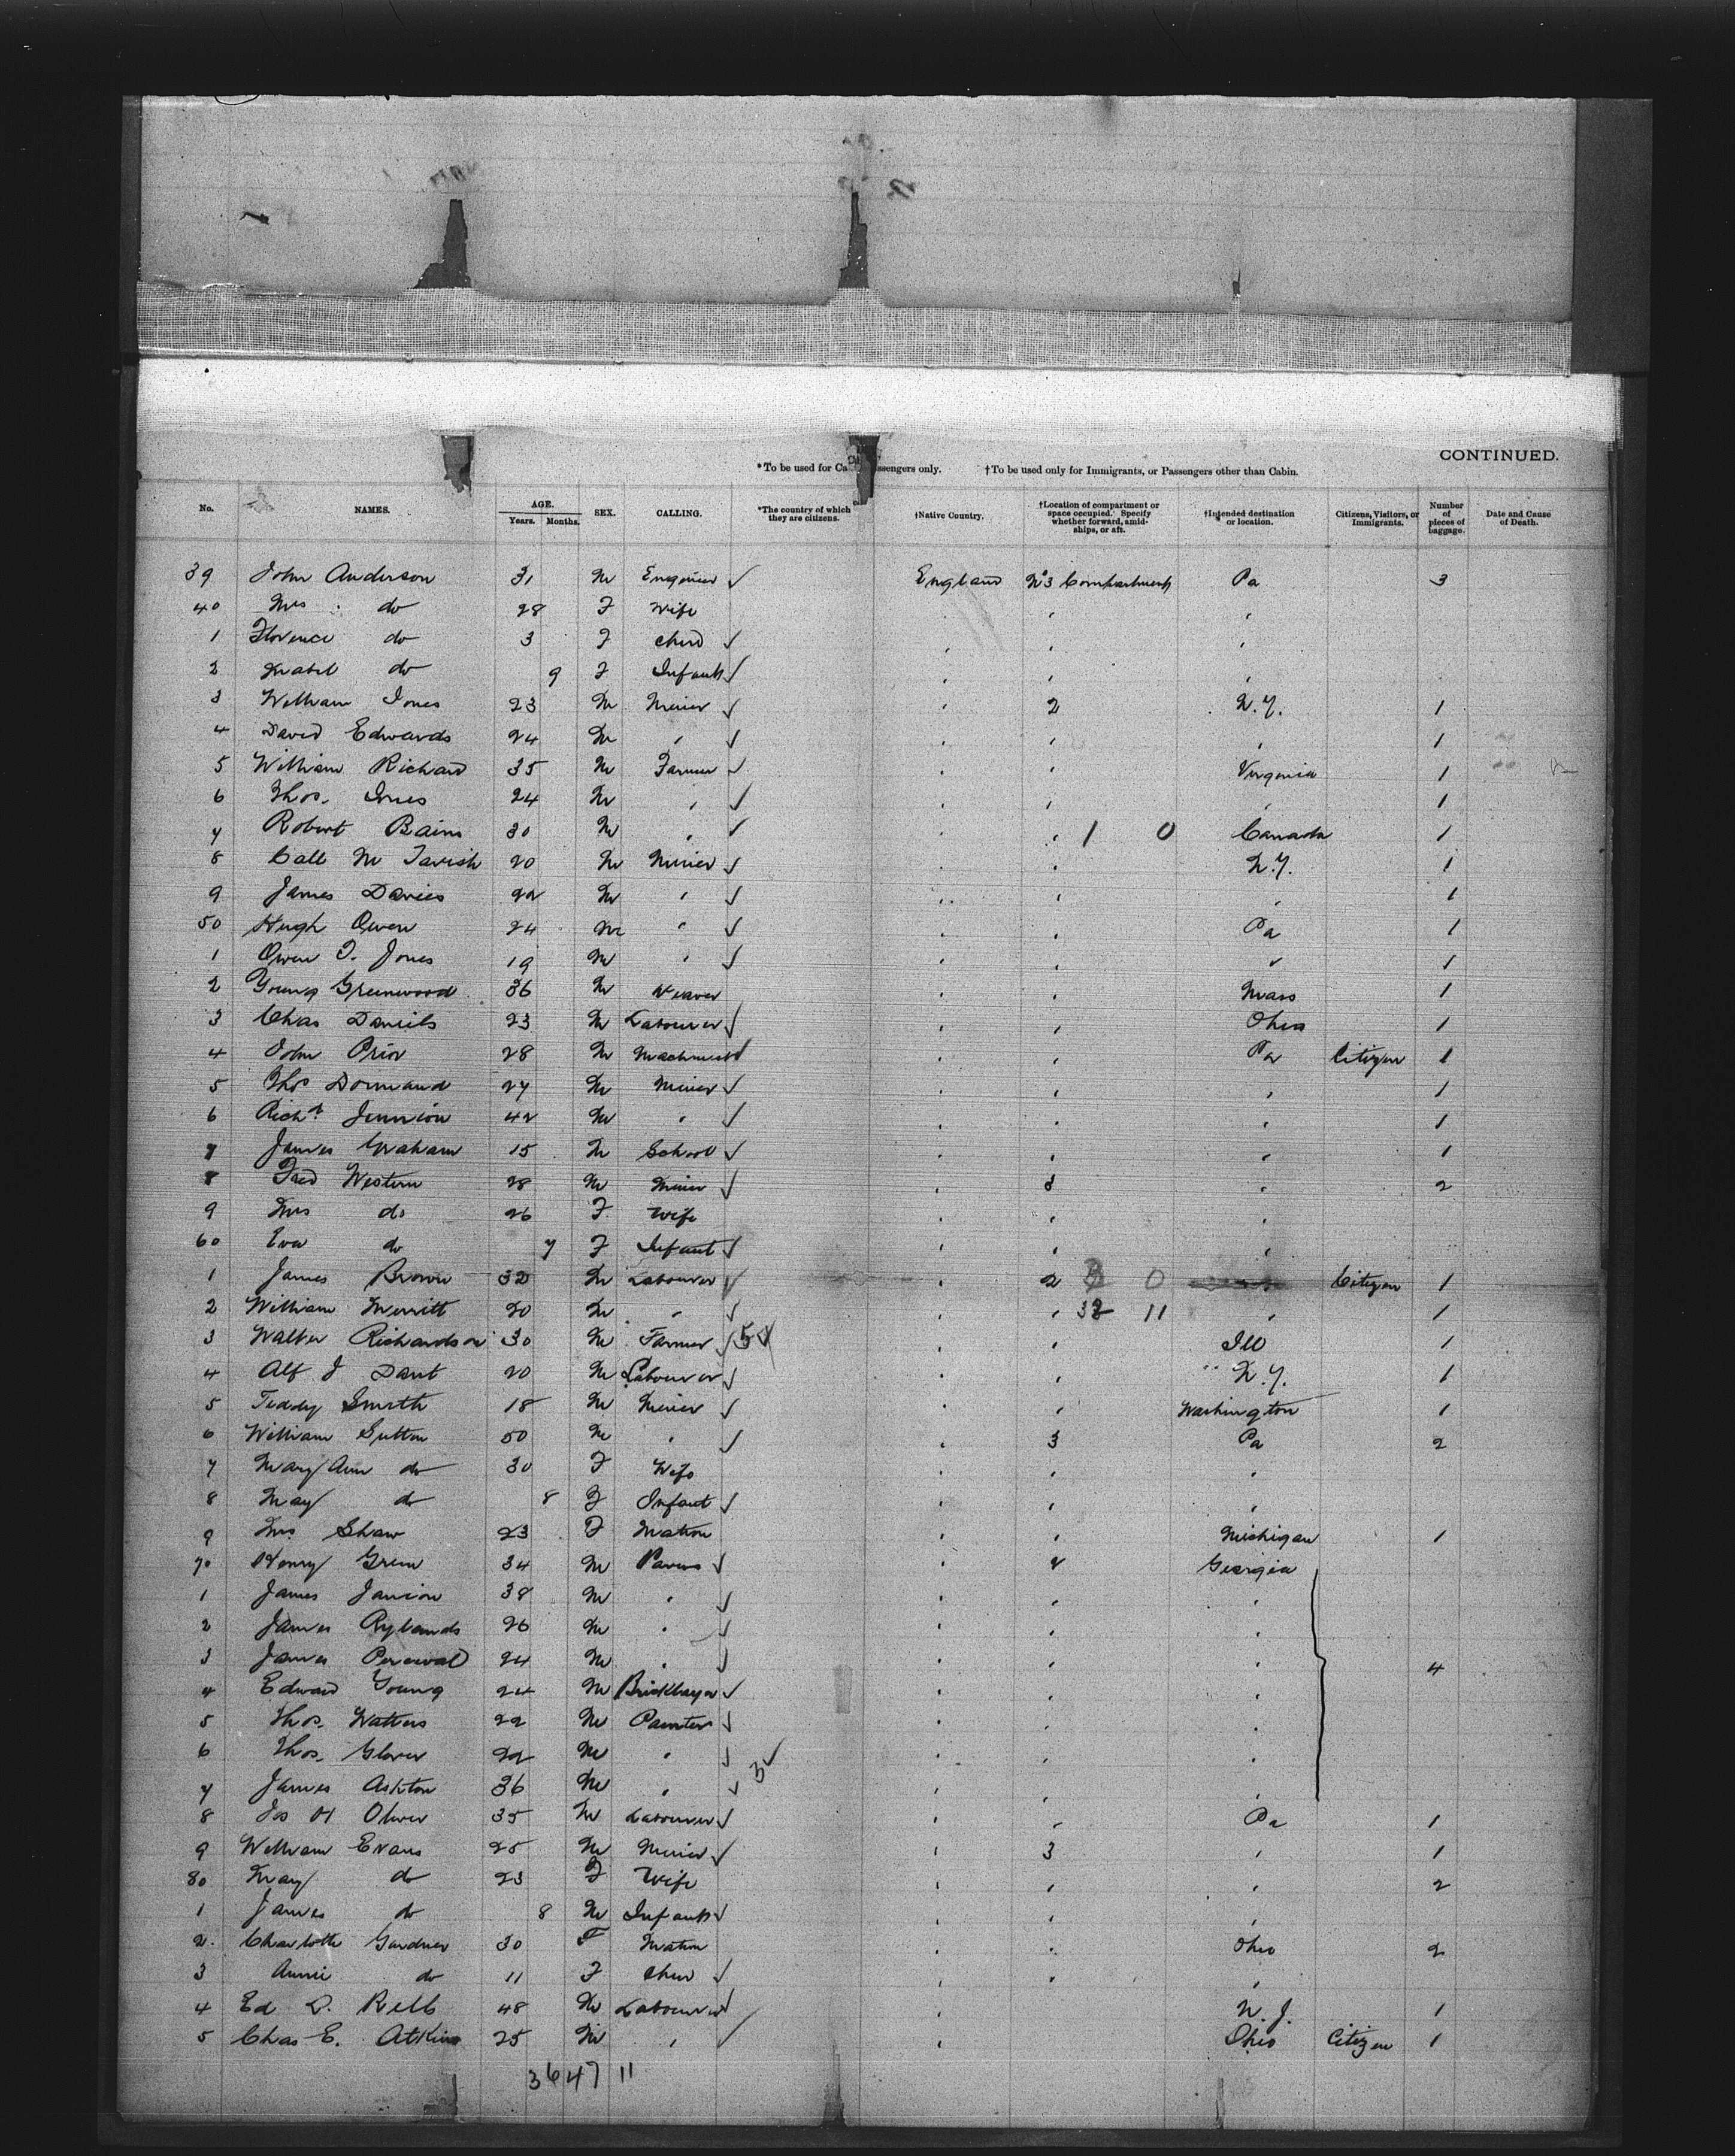 CONTINUED.
*To be used for Ca ssengers only. †To be used only for Immigrants, or Passengers other than Cabin.
No. NAMES. AGE. Years. Months. SEX. CALLING. *The country of which they are citizens. †Native Country. †Location of compartment or space occupied. Specify whether forward, amidships, or aft. †Intended destination or location. Citizens, Visitors, or Immigrants. Number of pieces of baggage. Date and Cause of Death.
39 John Anderson 31 M Engineer ✓ England No 3 Compartment Pa 3
40 Mrs do 28 F Wife
1 Florence do 3 F Child ✓
2 Mabel do 9 F Infant ✓
3 William Jones 23 M Miner ✓ 2 N.Y. 1
4 David Edwards 24 M " ✓ 1
5 William Richard 35 M Farmer ✓ Virginia 1
6 Thos. Jones 24 M " ✓ 1
7 Robert Bains 30 M " ✓ 1 0 Canada 1
8 Call McTavish 20 M Miner ✓ N.Y. 1
9 James Davies 22 M " ✓ 1
50 Hugh Owen 24 M " ✓ Pa 1
1 Owen T. Jones 19 M " ✓ " 1
2 Young Greenwood 36 M Weaver Mass 1
3 Chas Daniels 23 M Labourer ✓ Ohio 1
4 John Prior 28 M Machinist ✓ Pa Citizen 1
5 Thos Dormand 27 M Miner ✓ 1
6 Richd. Jennion 42 M " ✓ 1
7 James Graham 15 M School ✓ 1
8 Fred Western 28 M Miner ✓ 3 2
9 Mrs do 26 F Wife
60 Eva do 7 F Infant ✓
1 James Brown 32 M Labourer ✓ 2 0 Citizen 1
2 William Merritt 20 M " ✓ 32 11 1
3 Walter Richardson 30 M Farmer ✓ Ill 1
4 Alf J Dant 20 M Labourer ✓ N.Y. 1
5 Teddy Smith 18 M Miner ✓ Washington 1
6 William Sutton 50 M " ✓ 3 Pa 2
7 Mary Ann do 30 F Wife
8 May do 8 F Infant ✓
9 Mrs Shaw 23 F Matron Michigan 1
70 Henry Green 34 M ✓ 2 Georgia
1 James Janion 38 M " ✓
2 James Rylands 26 M " ✓
3 James Percival 24 M " ✓ 4
4 Edward Young 24 M Bricklayer ✓
5 Thos. Watters 22 M Painter ✓
6 Thos. Glover 22 M " ✓
7 James Ashton 36 M " ✓
8 Jos H Oliver 35 M Labourer ✓ Pa 1
9 William Evans 25 M Miner ✓ 3 1
80 May do 23 F Wife 2
1 James do 8 M Infant ✓
2 Charlotte Gardner 30 F Matron Ohio 2
3 Annie do 11 F Child ✓
4 Ed D. Rell 48 M Labourer ✓ N.J. 1
5 Chas E. Atkins 25 M " ✓ Ohio Citizen 1
3647 11